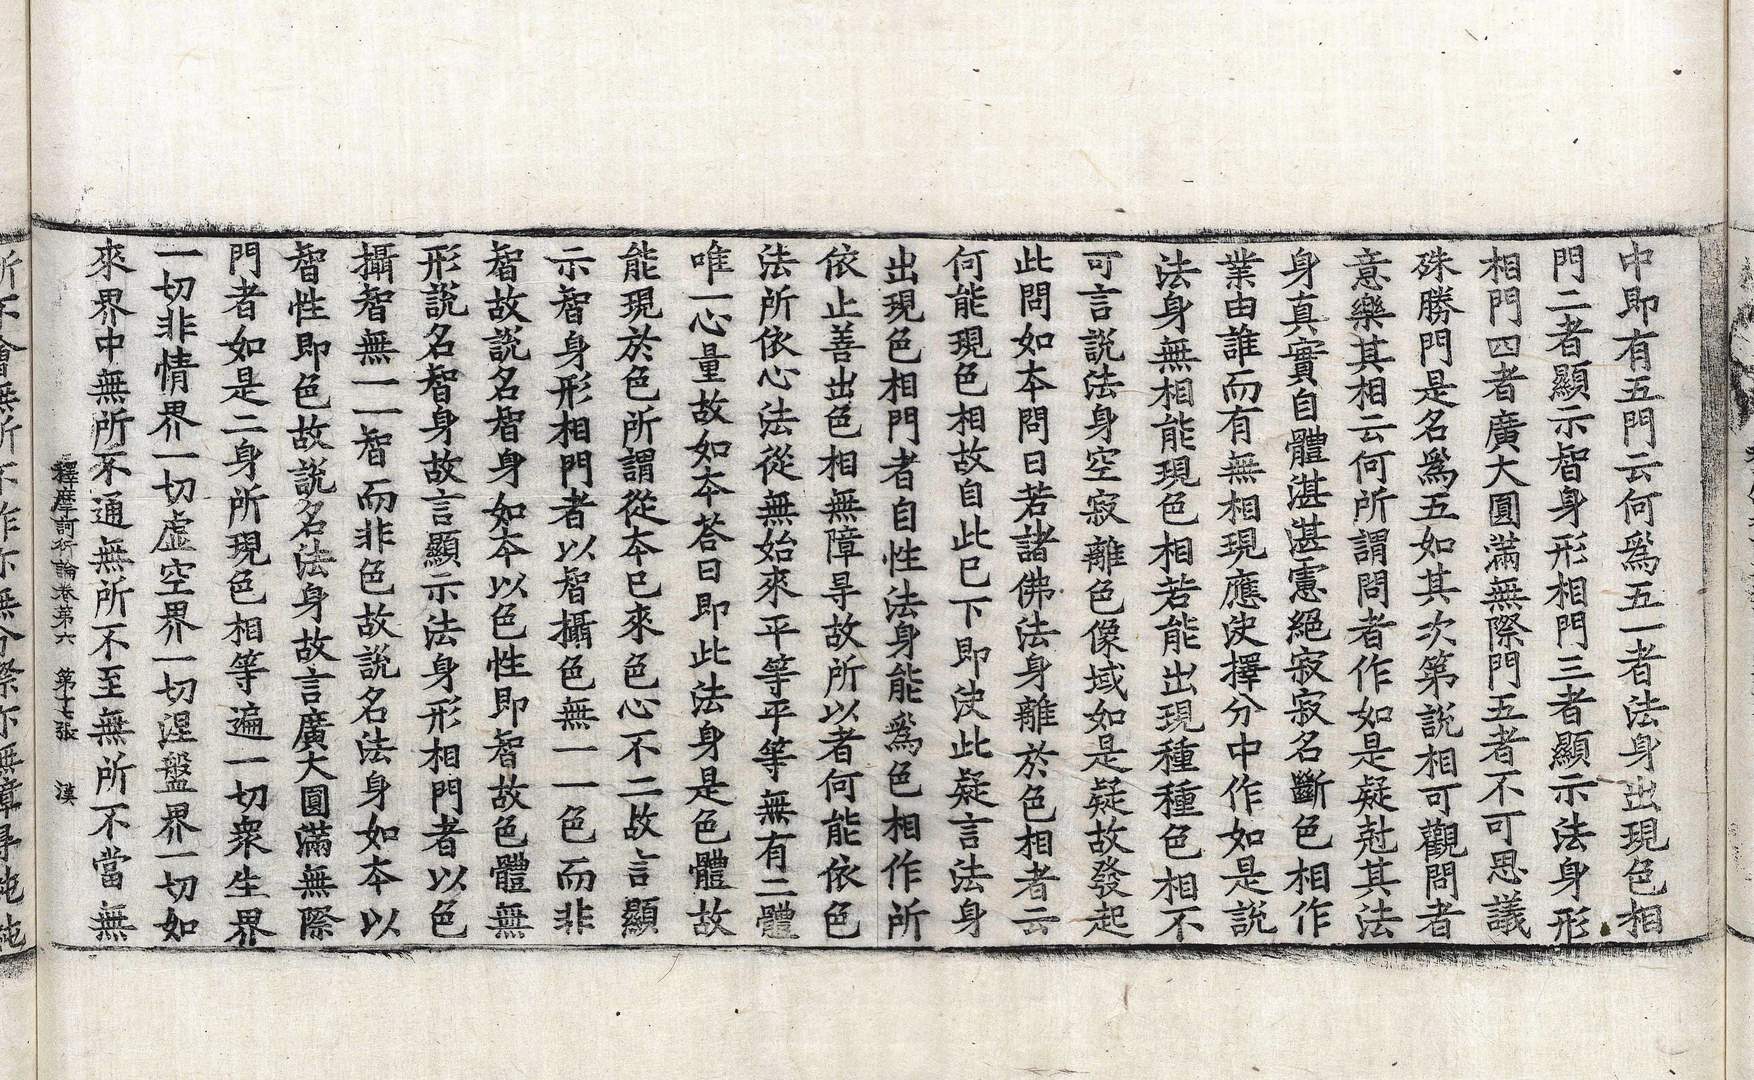 中即有五門云何爲五一者法身出現色相
門二者顯示智身形相門三者顯示法身形
相門四者廣大圓滿無際門五者不可思議
殊勝門是名爲五如其次第說相可觀問者
意樂其相云何所謂問者作如是疑尅其法
身真實自體湛湛憲絕寂寂名斷色相作
業由誰而有無相現應決擇分中作如是說
法身無相能現色相若能出現種種色相不
可言說法身空寂離色像域如是疑故發起
此問如本問曰若諸佛法身離於色相者云
何能現色相故自此已下即決此疑言法身
出現色相門者自性法身能爲色相作所
依止善出色相無障㝵故所以者何能依色
法所依心法從無始來平等平等無有二體
唯一心量故如本荅曰即此法身是色體故
能現於色所謂從本已來色心不二故言顯
示智身形相門者以智攝色無一一色而非
智故說名智身如本以色性即智故色體無
形說名智身故言顯示法身形相門者以色
攝智無一一智而非色故說名法身如本以
智性即色故說名法身故言廣大圓滿無際
門者如是二身所現色相等遍一切衆生界
一切非情界一切虛空界一切涅盤界一切如
來界中無所不通無所不至無所不當無
釋摩訶衍論卷第六　第十七張　漢
所不會無所不作亦無分際亦無障㝵純純